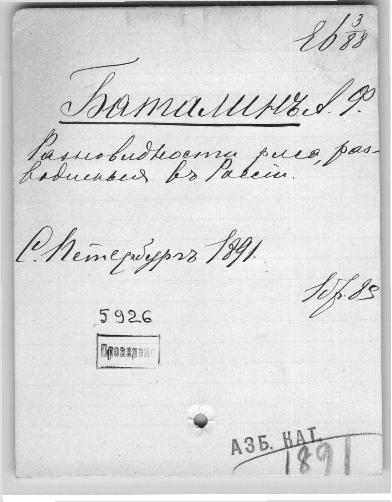 Еб 3/88
Баталинъ А. Ф.
Разновидности риса, раз-
водимыя въ Россіи.
С. Петербургъ 1891.
Бр. 83
5926
Проверено
АЗБ. КАТ.
1891